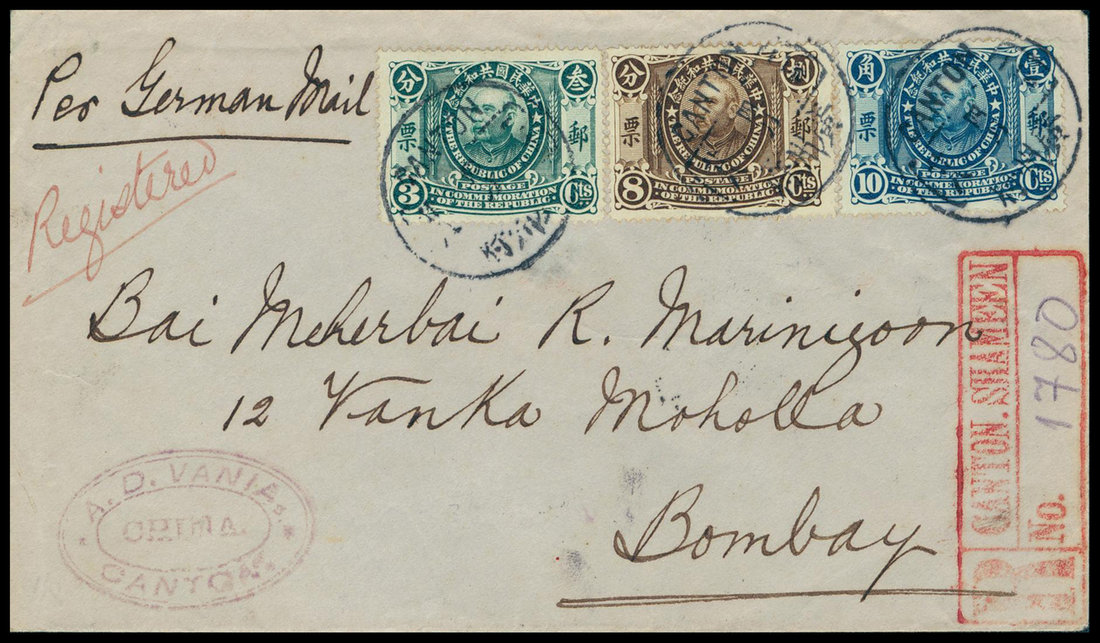 Per German Mail
Registered
分 中華民國共和紀念 叁
票 郵
THE REPUBLIC OF CHINA
3 POSTAGE Cts
IN COMMEMORATION
OF THE REPUBLIC
分 中華民國共和紀念 捌
票 郵
THE REPUBLIC OF CHINA
8 POSTAGE Cts
IN COMMEMORATION
OF THE REPUBLIC
角 中華民國共和紀念 壹
票 郵
THE REPUBLIC OF CHINA
10 POSTAGE Cts
IN COMMEMORATION
OF THE REPUBLIC
CANTON
CANTON
CANTON
Bai Meherbai R. Marinigoon
12 Vanka Moholla
Bombay
A. D. VANIA
CHINA.
CANTON
R CANTON. SHAMEEN
No. 1780